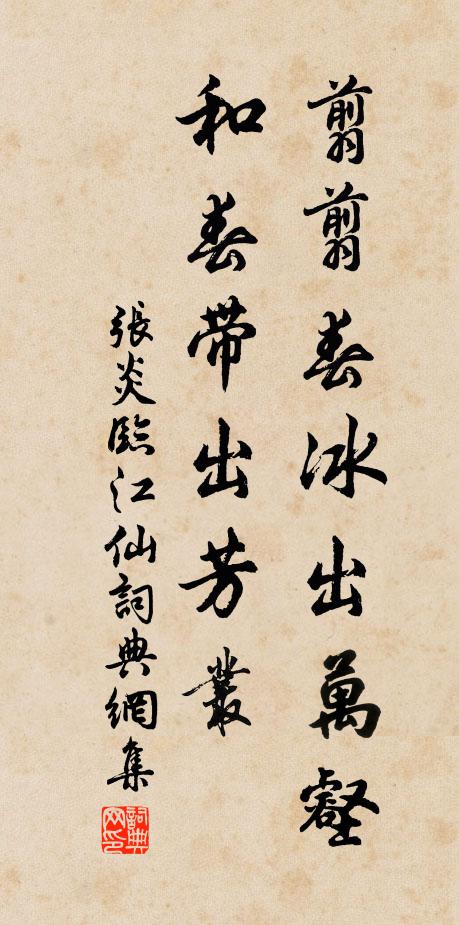 翦翦春冰出萬壑
和春帶出芳叢
張炎臨江仙詞典網集
詞典网印